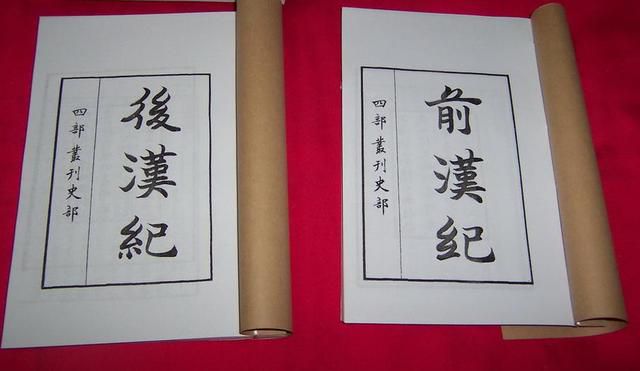 後漢紀
四部叢刊史部
前漢紀
四部叢刊史部